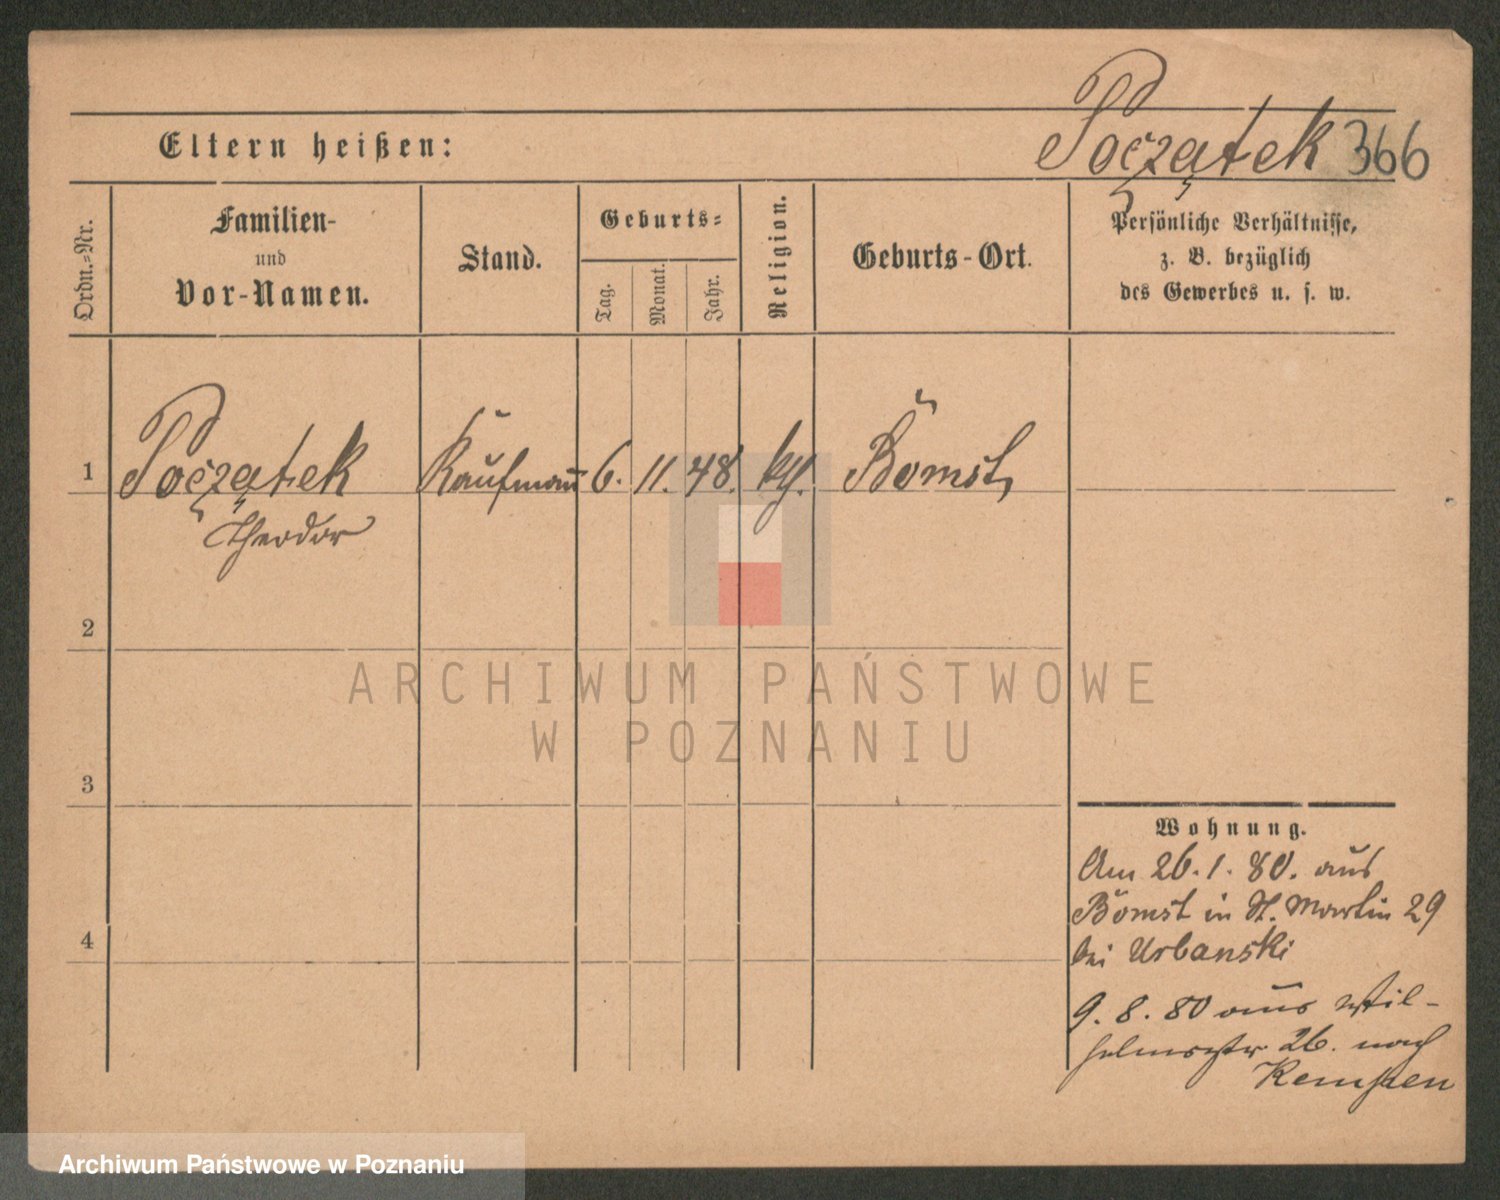 Początek 366
Eltern heißen:
Ordn.-Nr.
Familien-
und
Vor-Namen.
Stand.
Geburts-
Tag.
Monat.
Jahr.
Religion.
Geburts-Ort.
Persönliche Verhältnisse,
z. B. bezüglich
des Gewerbes u. s. w.
1 Początek Kaufmann 6. 11. 48. kth. Bomst
Theodor
2
3
4
Wohnung.
Am 26. 1. 80. aus
Bomst in St. Martin 29
bei Urbanski
9. 8. 80 aus Wil-
helmsstr 26. nach
Kempen
ARCHIWUM PAŃSTWOWE
W POZNANIU
Archiwum Państwowe w Poznaniu